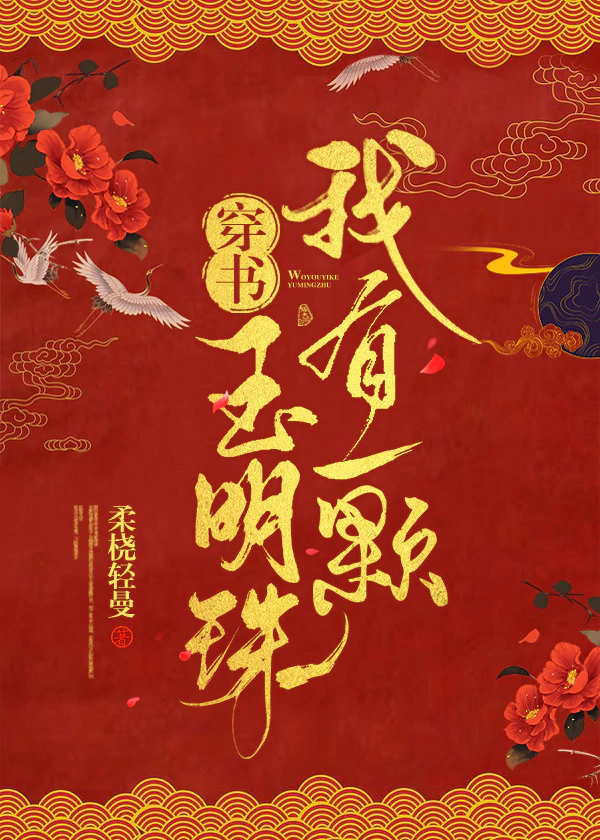 我有一颗
WOYOUYIKE
YUMINGZHU
穿书
玉明珠
柔桡轻曼
著